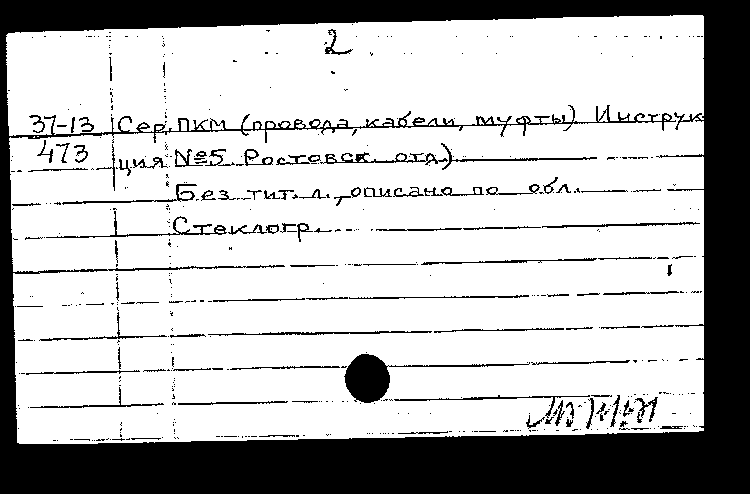 2
37-13 Сер. ПКМ (провода, кабели, муфты) Инструк
473 ция №5 Ростовск. отд.)
Без тит. л., описано по обл.
Стеклогр.